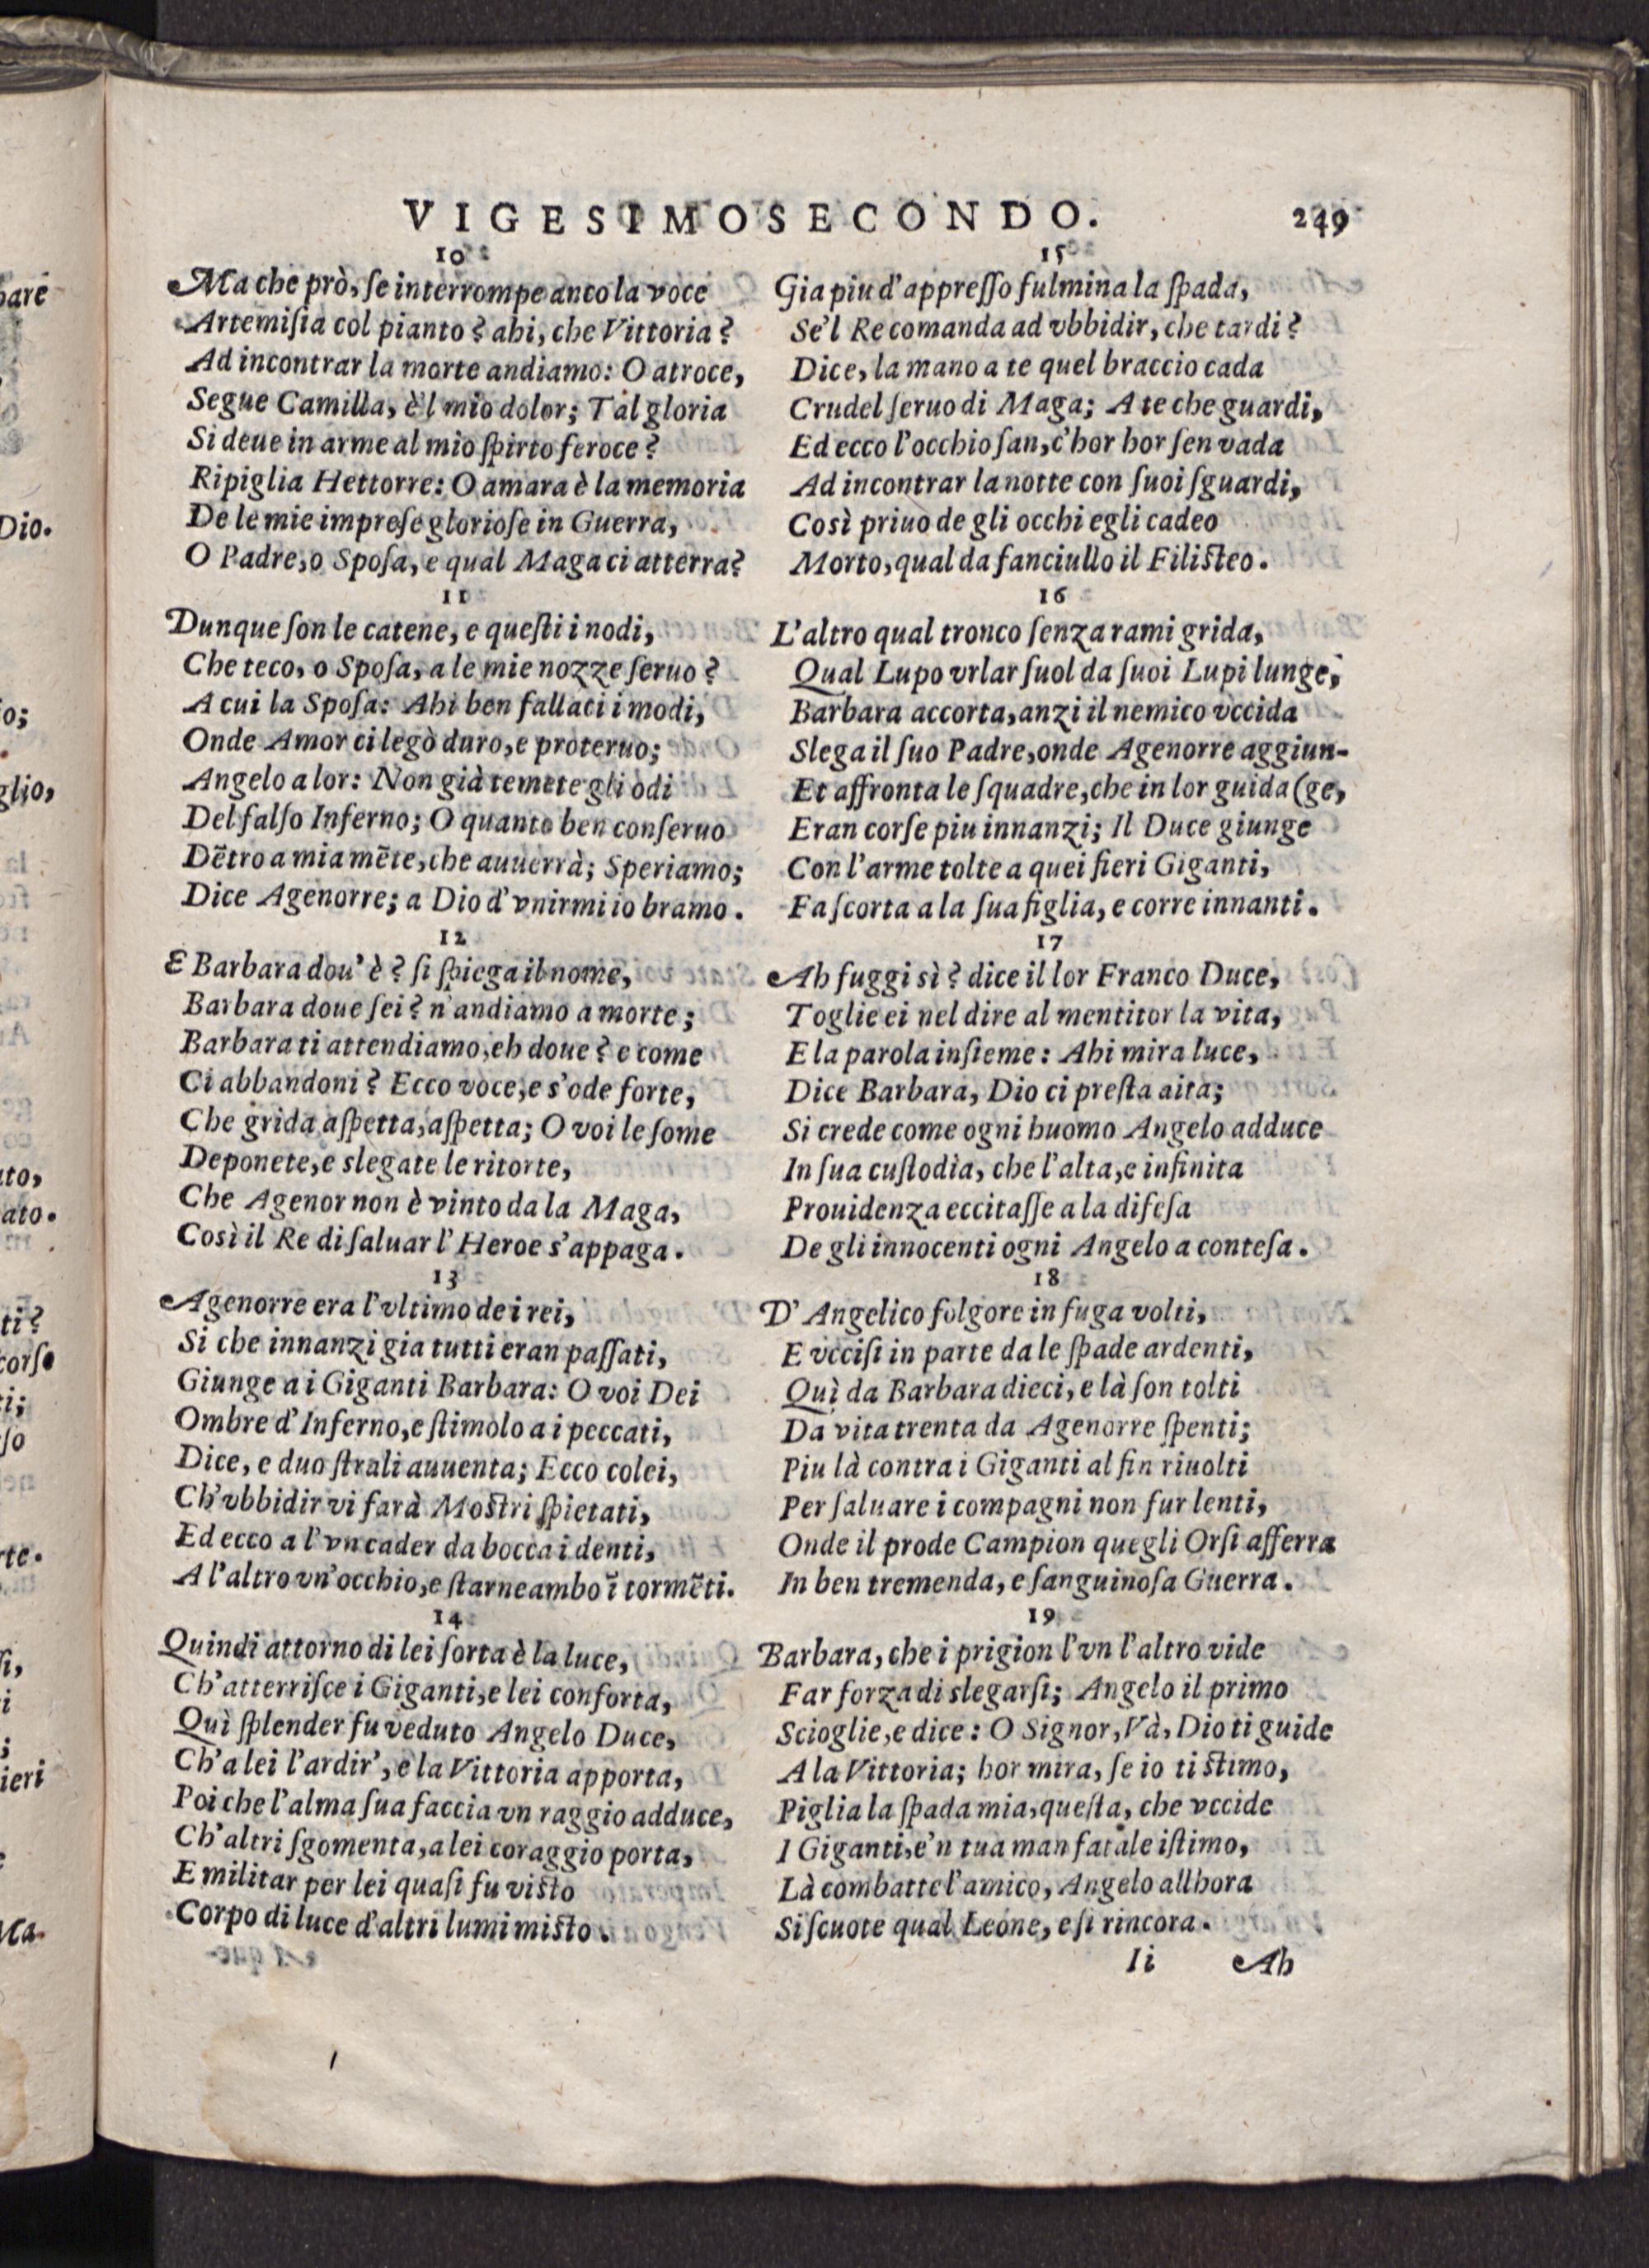 VIGESIMOSECONDO. 249
10
Ma che prò, ſe interrompe anco la voce
Artemiſia col pianto? ahi, che Vittoria?
Ad incontrar la morte andiamo: O atroce,
Segue Camilla, è'l mio dolor; Tal gloria
Si deue in arme al mio ſpirto feroce?
Ripiglia Hettorre: O amara è la memoria
De le mie impreſe glorioſe in Guerra,
O Padre, o Spoſa, e qual Maga ci atterra?
11
Dunque ſon le catene, e queſti i nodi,
Che teco, o Spoſa, a le mie nozze ſeruo?
A cui la Spoſa: Ahi ben fallaci i modi,
Onde Amor ci legò duro, e proteruo;
Angelo a lor: Non già temete gli odi
Del falſo Inferno; O quanto ben conſeruo
Dẽtro a mia mẽte, che auuerrà; Speriamo;
Dice Agenorre; a Dio d'vnirmi io bramo.
12
E Barbara dou'è? ſi ſpiega il nome,
Barbara doue ſei? n'andiamo a morte;
Barbara ti attendiamo, eh doue? e come
Ci abbandoni? Ecco voce, e s'ode forte,
Che grida aſpetta, aſpetta; O voi le ſome
Deponete, e slegate le ritorte,
Che Agenor non è vinto da la Maga,
Così il Re di ſaluar l'Heroe s'appaga.
13
Agenorre era l'vltimo de i rei,
Si che innanzi gia tutti eran paſſati,
Giunge a i Giganti Barbara: O voi Dei
Ombre d'Inferno, e ſtimolo a i peccati,
Dice, e duo ſtrali auuenta; Ecco colei,
Ch'vbbidir vi farà Moſtri ſpietati,
Ed ecco a l'vn cader da bocca i denti,
A l'altro vn'occhio, e ſtarne ambo ĩ tormẽti.
14
Quindi attorno di lei ſorta è la luce,
Ch'atterriſce i Giganti, e lei conforta,
Quì ſplender fu veduto Angelo Duce,
Ch'a lei l'ardir', e la Vittoria apporta,
Poi che l'alma ſua faccia vn raggio adduce,
Ch'altri ſgomenta, a lei coraggio porta,
E militar per lei quaſi fu viſto
Corpo di luce d'altri lumi miſto.
15
Gia piu d'appreſſo fulmina la ſpada,
Se'l Re comanda ad vbbidir, che tardi?
Dice, la mano a te quel braccio cada
Crudel ſeruo di Maga; A te che guardi,
Ed ecco l'occhio ſan, c'hor hor ſen vada
Ad incontrar la notte con ſuoi ſguardi,
Così priuo de gli occhi egli cadeo
Morto, qual da fanciullo il Filiſteo.
16
L'altro qual tronco ſenza rami grida,
Qual Lupo vrlar ſuol da ſuoi Lupi lunge,
Barbara accorta, anzi il nemico vccida
Slega il ſuo Padre, onde Agenorre aggiun-
Et affronta le ſquadre, che in lor guida (ge,
Eran corſe piu innanzi; Il Duce giunge
Con l'arme tolte a quei fieri Giganti,
Fa ſcorta a la ſua figlia, e corre innanti.
17
Ah fuggi sì? dice il lor Franco Duce,
Toglie ei nel dire al mentitor la vita,
E la parola inſieme: Ahi mira luce,
Dice Barbara, Dio ci preſta aita;
Si crede come ogni huomo Angelo adduce
In ſua cuſtodia, che l'alta, e infinita
Prouidenza eccitaſſe a la difeſa
De gli innocenti ogni Angelo a conteſa.
18
D'Angelico folgore in fuga volti,
E vcciſi in parte da le ſpade ardenti,
Quì da Barbara dieci, e là ſon tolti
Da vita trenta da Agenorre ſpenti;
Piu là contra i Giganti al fin riuolti
Per ſaluare i compagni non fur lenti,
Onde il prode Campion quegli Orſi afferra
In ben tremenda, e ſanguinoſa Guerra.
19
Barbara, che i prigion l'vn l'altro vide
Far forza di slegarſi; Angelo il primo
Scioglie, e dice: O Signor, Và, Dio ti guide
A la Vittoria; hor mira, ſe io ti ſtimo,
Piglia la ſpada mia, queſta, che vccide
I Giganti, e'n tua man fatale iſtimo,
Là combatte l'amico, Angelo allhora
Si ſcuote qual Leone, e ſi rincora.
Ii Ah